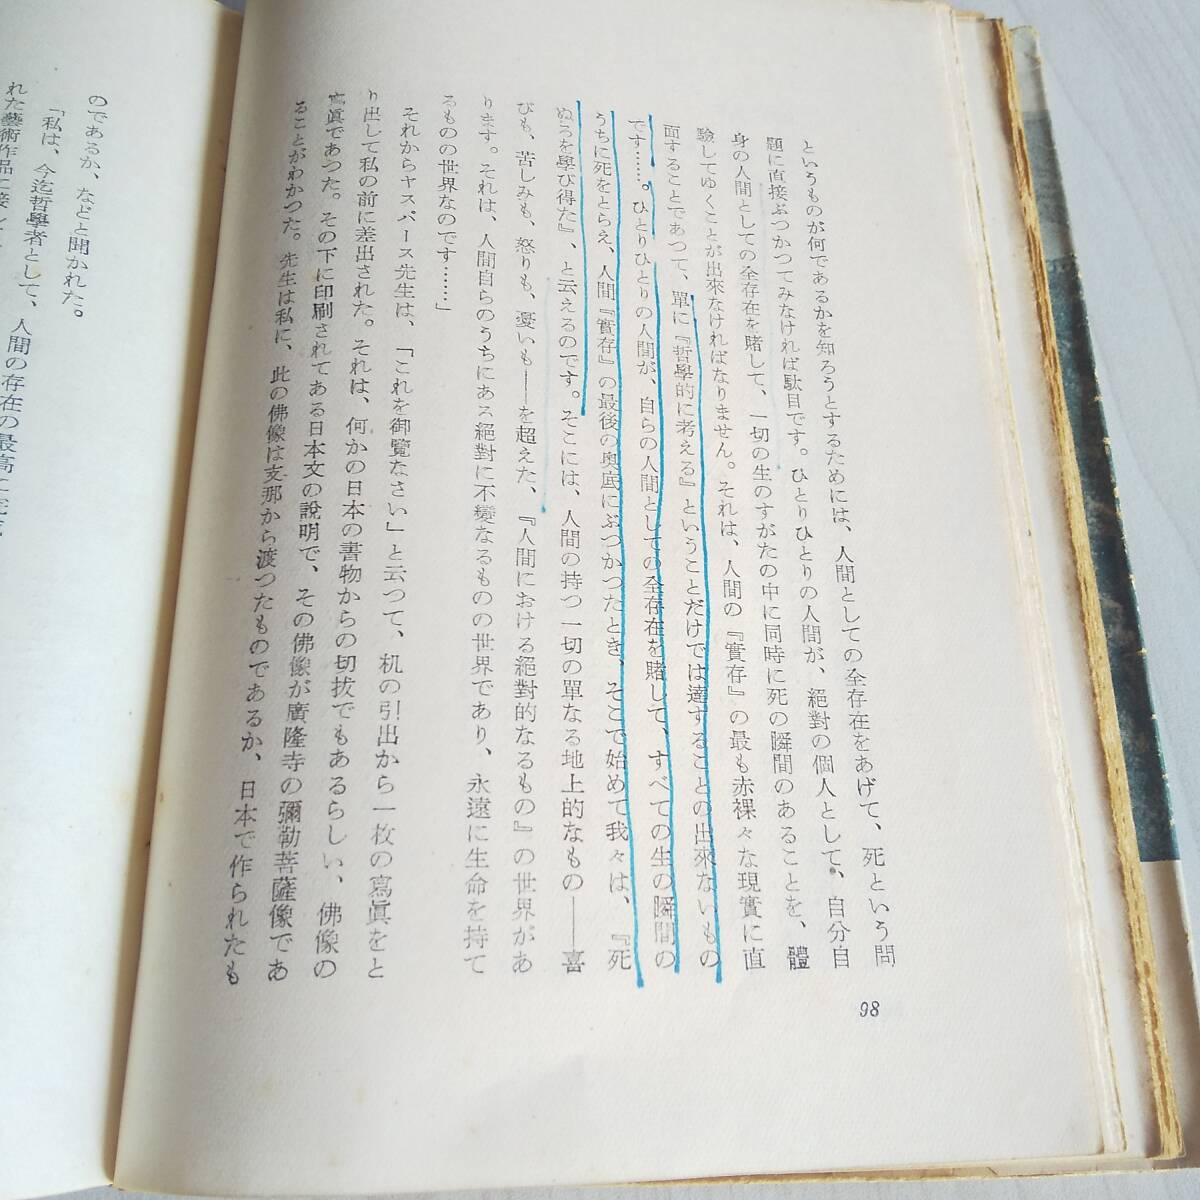 というものが何であるかを知ろうとするためには、人間としての全存在をあげて、死という問
題に直接ぶつかつてみなければ駄目です。ひとりひとりの人間が、絕對の個人として、自分自
身の人間としての全存在を賭して、一切の生のすがたの中に同時に死の瞬間のあることを、體
驗してゆくことが出來なければなりません。それは、人間の『實存』の最も赤裸々な現實に直
面することであつて、單に『哲學的に考える』ということだけでは達することの出來ないもの
です……。ひとりひとりの人間が、自らの人間としての全存在を賭して、すべての生の瞬間の
うちに死をとらえ、人間『實存』の最後の奧底にぶつかつたとき、そこで始めて我々は、『死
ぬろを學び得た』、と云えるのです。そこには、人間の持つ一切の單なる地上的なもの――喜
びも、苦しみも、怒りも、憂いも――を超えた、『人間における絕對的なるもの』の世界があ
ります。それは、人間自らのうちにある絕對に不變なるものの世界であり、永遠に生命を持て
るものの世界なのです……」
それからヤスパース先生は、「これを御覽なさい」と云つて、机の引出から一枚の寫眞をと
り出して私の前に差出された。それは、何かの日本の書物からの切拔でもあるらしい、佛像の
寫眞であつた。その下に印刷されてある日本文の說明で、その佛像が廣隆寺の彌勒菩薩像であ
ることがわかつた。先生は私に、此の佛像は支那から渡つたものであるか、日本で作られたも
98
のであるか、などと聞かれた。
「私は、今迄哲學者として、人間の存在の最高に
れた藝術作品に接し